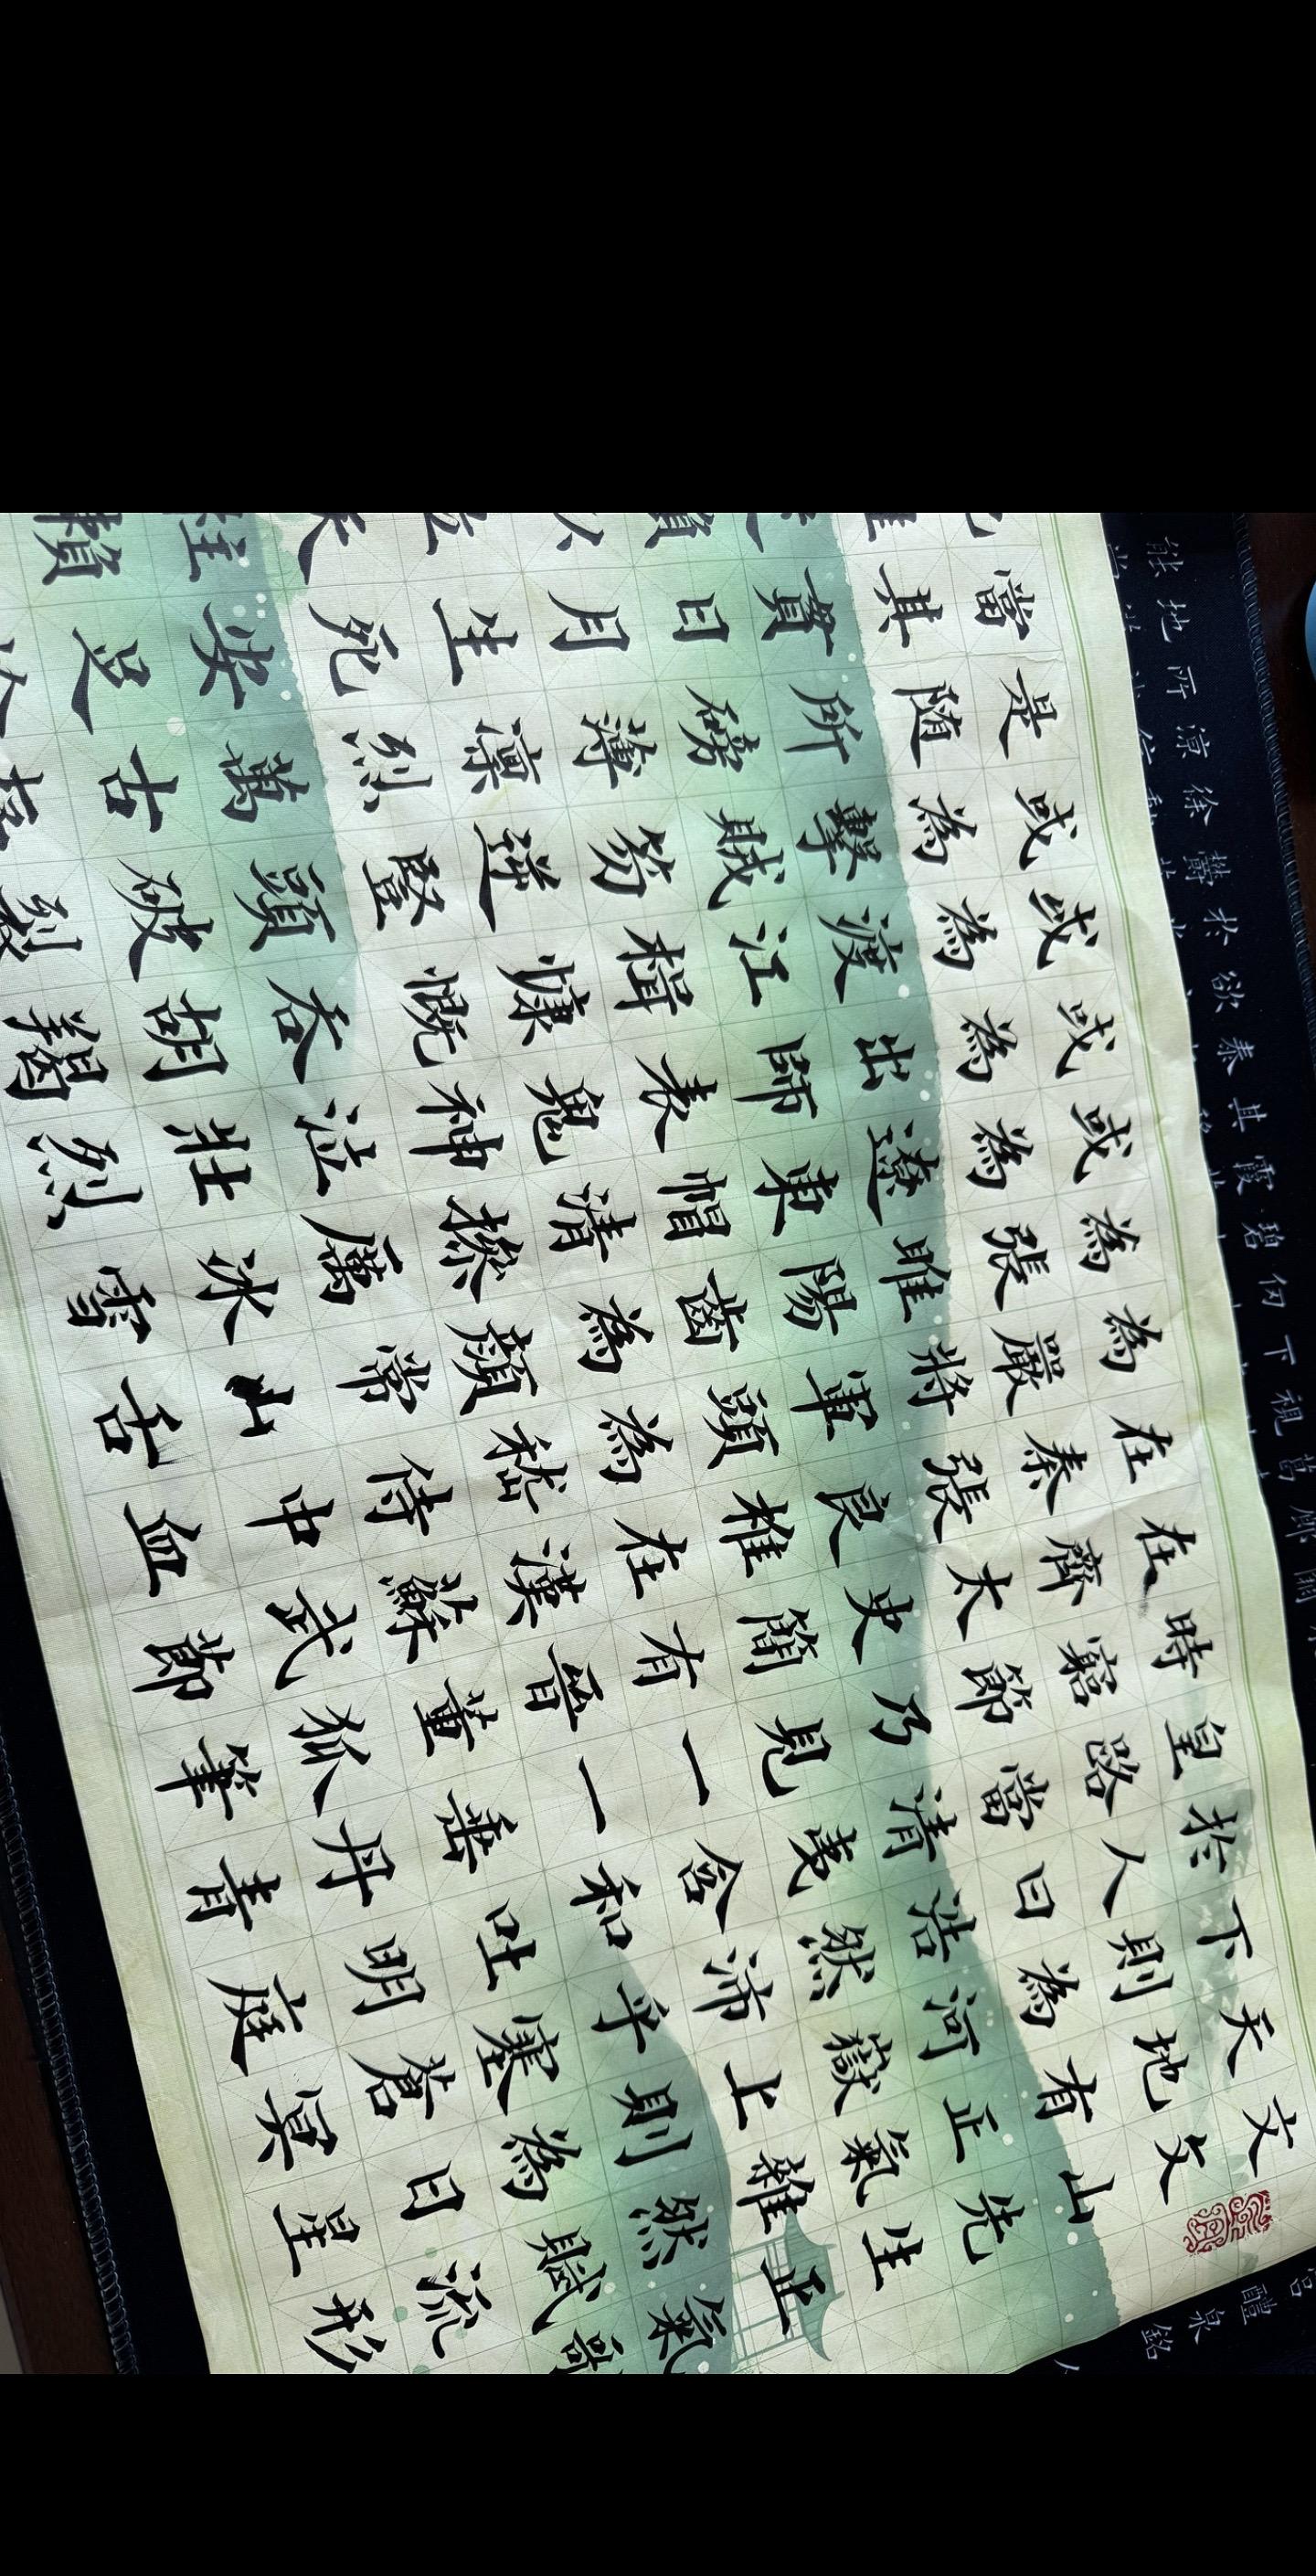 文文山先生正氣歌
天地有正氣雜然賦流形
下則為河嶽上則為日星
於人曰浩然沛乎塞蒼冥
皇路當清夷含和吐明庭
時窮節乃見一一垂丹青
在齊太史簡在晉董狐筆
在秦張良椎在漢蘇武節
為嚴將軍頭為嵇侍中血
為張睢陽齒為顏常山舌
或為遼東帽清操厲冰雪
或為出師表鬼神泣壯烈
或為渡江楫慷慨吞胡羯
或為擊賊笏逆豎頭破裂
是随所磅薄凜烈萬古
當其貫日月生死安足
維賴以立天柱賴
醴泉銘